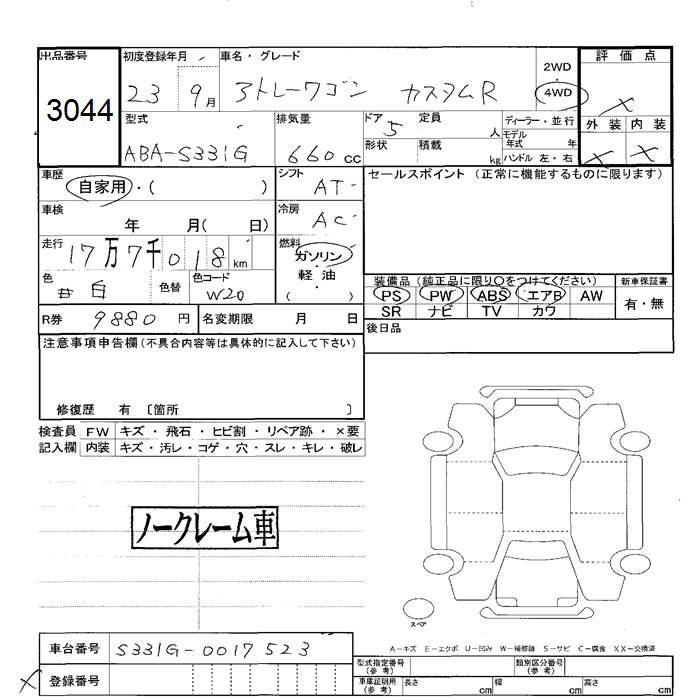 出品番号 初度登録年月 車名・グレード 2WD・4WD 評価点
3044 23 9月 アトレーワゴン カスタムR ×
型式 排気量 ドア 定員 人 ディーラー・並行 外装 内装
ABA-S331G 660cc 5 モデル年式 年 × ×
形状 積載 kg ハンドル 左・右
車歴 シフト セールスポイント (正常に機能するものに限ります)
自家用・( ) AT
車検 冷房
年 月( 日) AC
走行 燃料
17万7千018km ガソリン・軽油
色 色替 色コード ( ) 装備品 (純正品に限り○をつけてください) 新車保証書
白 W20 PS PW ABS エアB AW 有・無
SR ナビ TV カワ
R券 9880円 名変期限 月 日 後日品
注意事項申告欄(不具合内容等は具体的に記入して下さい)
修復歴 有 〔箇所 〕
検査員 FW キズ・飛石・ヒビ割・リペア跡・×要
記入欄 内装 キズ・汚レ・コゲ・穴・スレ・キレ・破レ
ノークレーム車
スペア
A-キズ E-エクボ U-凹み W-補修跡 S-サビ C-腐食 XX-交換済
車台番号 S331G-0017523
型式指定番号(参考) 類別区分番号(参考)
× 登録番号
車庫証明用(参考) 長さ cm 幅 cm 高さ cm